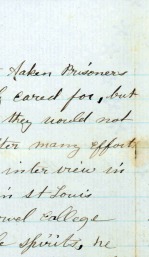 Taken Prisoners
cared for, but
they would not
after many effort
interview in
in St Louis
college
spirits, he